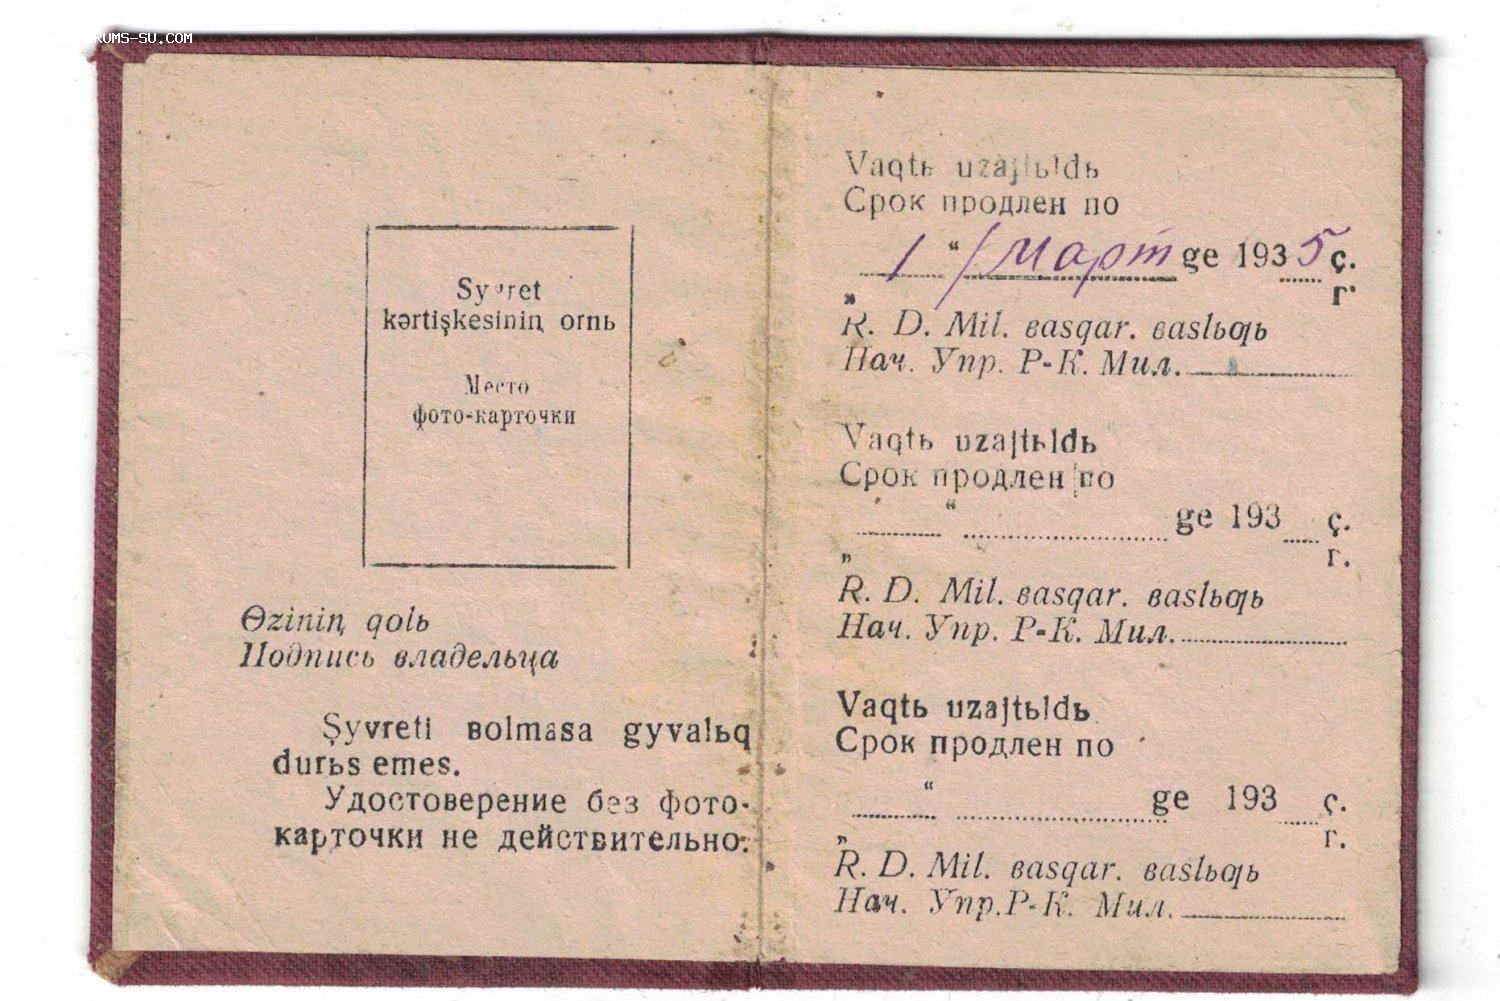 RUMS-SU.COM
Syvret
kərtişkesiniꞑ ornь
Место
фото-карточки
Өziniꞑ qolь
Подпись владельца
Şyvreti ʙolmasa gyvalьq
durьs emes.
Удостоверение без фото-
карточки не действительно.
Vaqtь uzajtьldь
Срок продлен по
1 “ март ge 1935 ç.
„ г.
R. D. Mil. ʙasqar. ʙaslьƣь
Нач. Упр. Р-К. Мил.
Vaqtь uzajtьldь
Срок продлен по
“ ge 193 ç.
„ г.
R. D. Mil. ʙasqar. ʙaslьƣь
Нач. Упр. Р-К. Мил.
Vaqtь uzajtьldь
Срок продлен по
“ ge 193 ç.
„ г.
R. D. Mil. ʙasqar. ʙaslьƣь
Нач. Упр. Р-К. Мил.